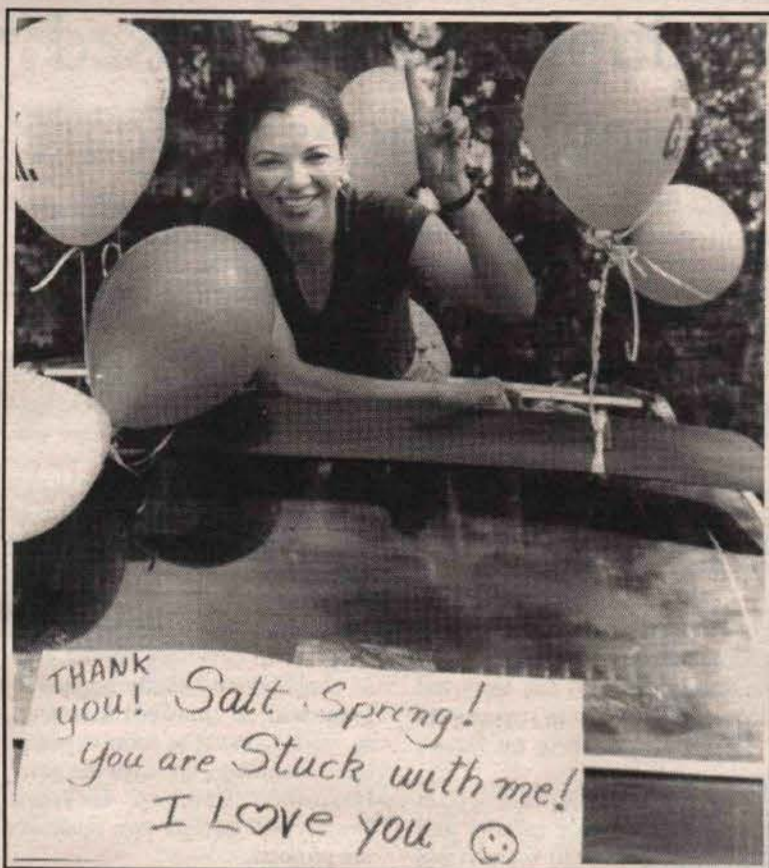 G
THANK
you! Salt Spring!
You are Stuck with me!
I L♡ve you ☺